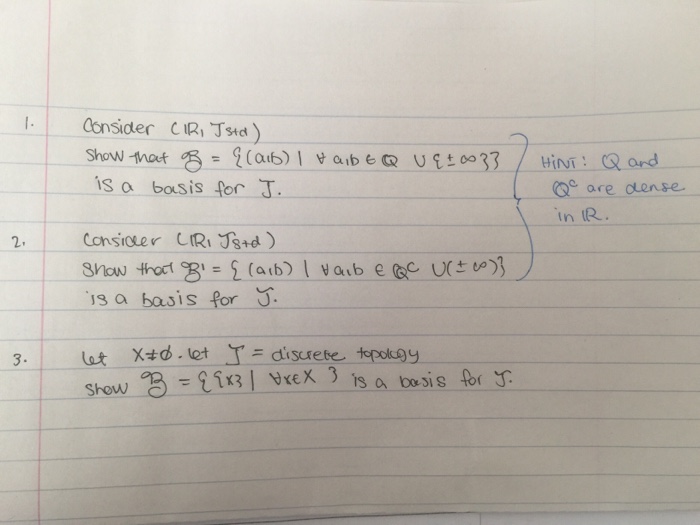 1. Consider (ℝ, Jstd)
Show that 𝓑 = {(a,b) | ∀ a,b ∈ ℚ ∪ {±∞}}
is a basis for J.
HINT: ℚ and
ℚᶜ are dense
in ℝ.
2. Consider (ℝ, Jstd)
Show that 𝓑' = {(a,b) | ∀ a,b ∈ ℚᶜ ∪ (±∞)}
is a basis for J.
3. let X≠∅. let J = discrete topology
show 𝓑 = {{x} | ∀x∈X } is a basis for J.